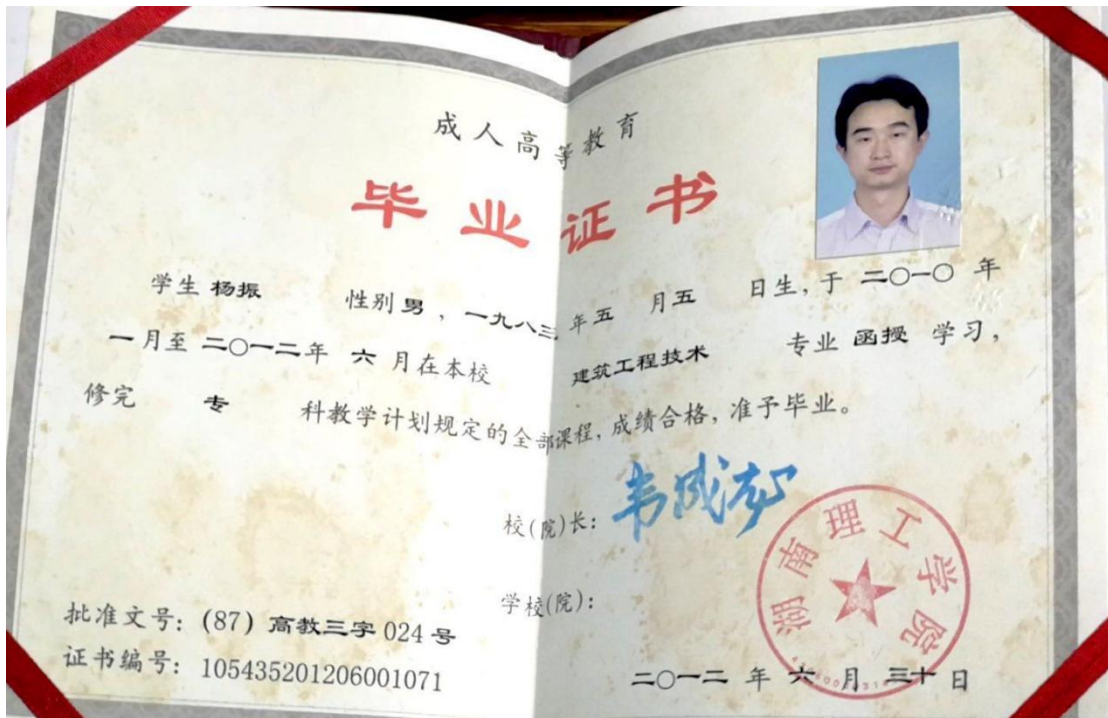 成人高等教育
毕业证书
学生 杨振 性别 男 , 一九八三 年 五 月 五 日生, 于 二〇一〇 年
一 月至 二〇一二 年 六 月在本校 建筑工程技术 专业 函授 学习,
修完 专 科教学计划规定的全部课程, 成绩合格, 准予毕业。
校(院)长: 韦成龙
湖南理工学院
学校(院):
批准文号: (87) 高教三字 024 号
证书编号: 105435201206001071
二〇一二 年 六 月 三十 日